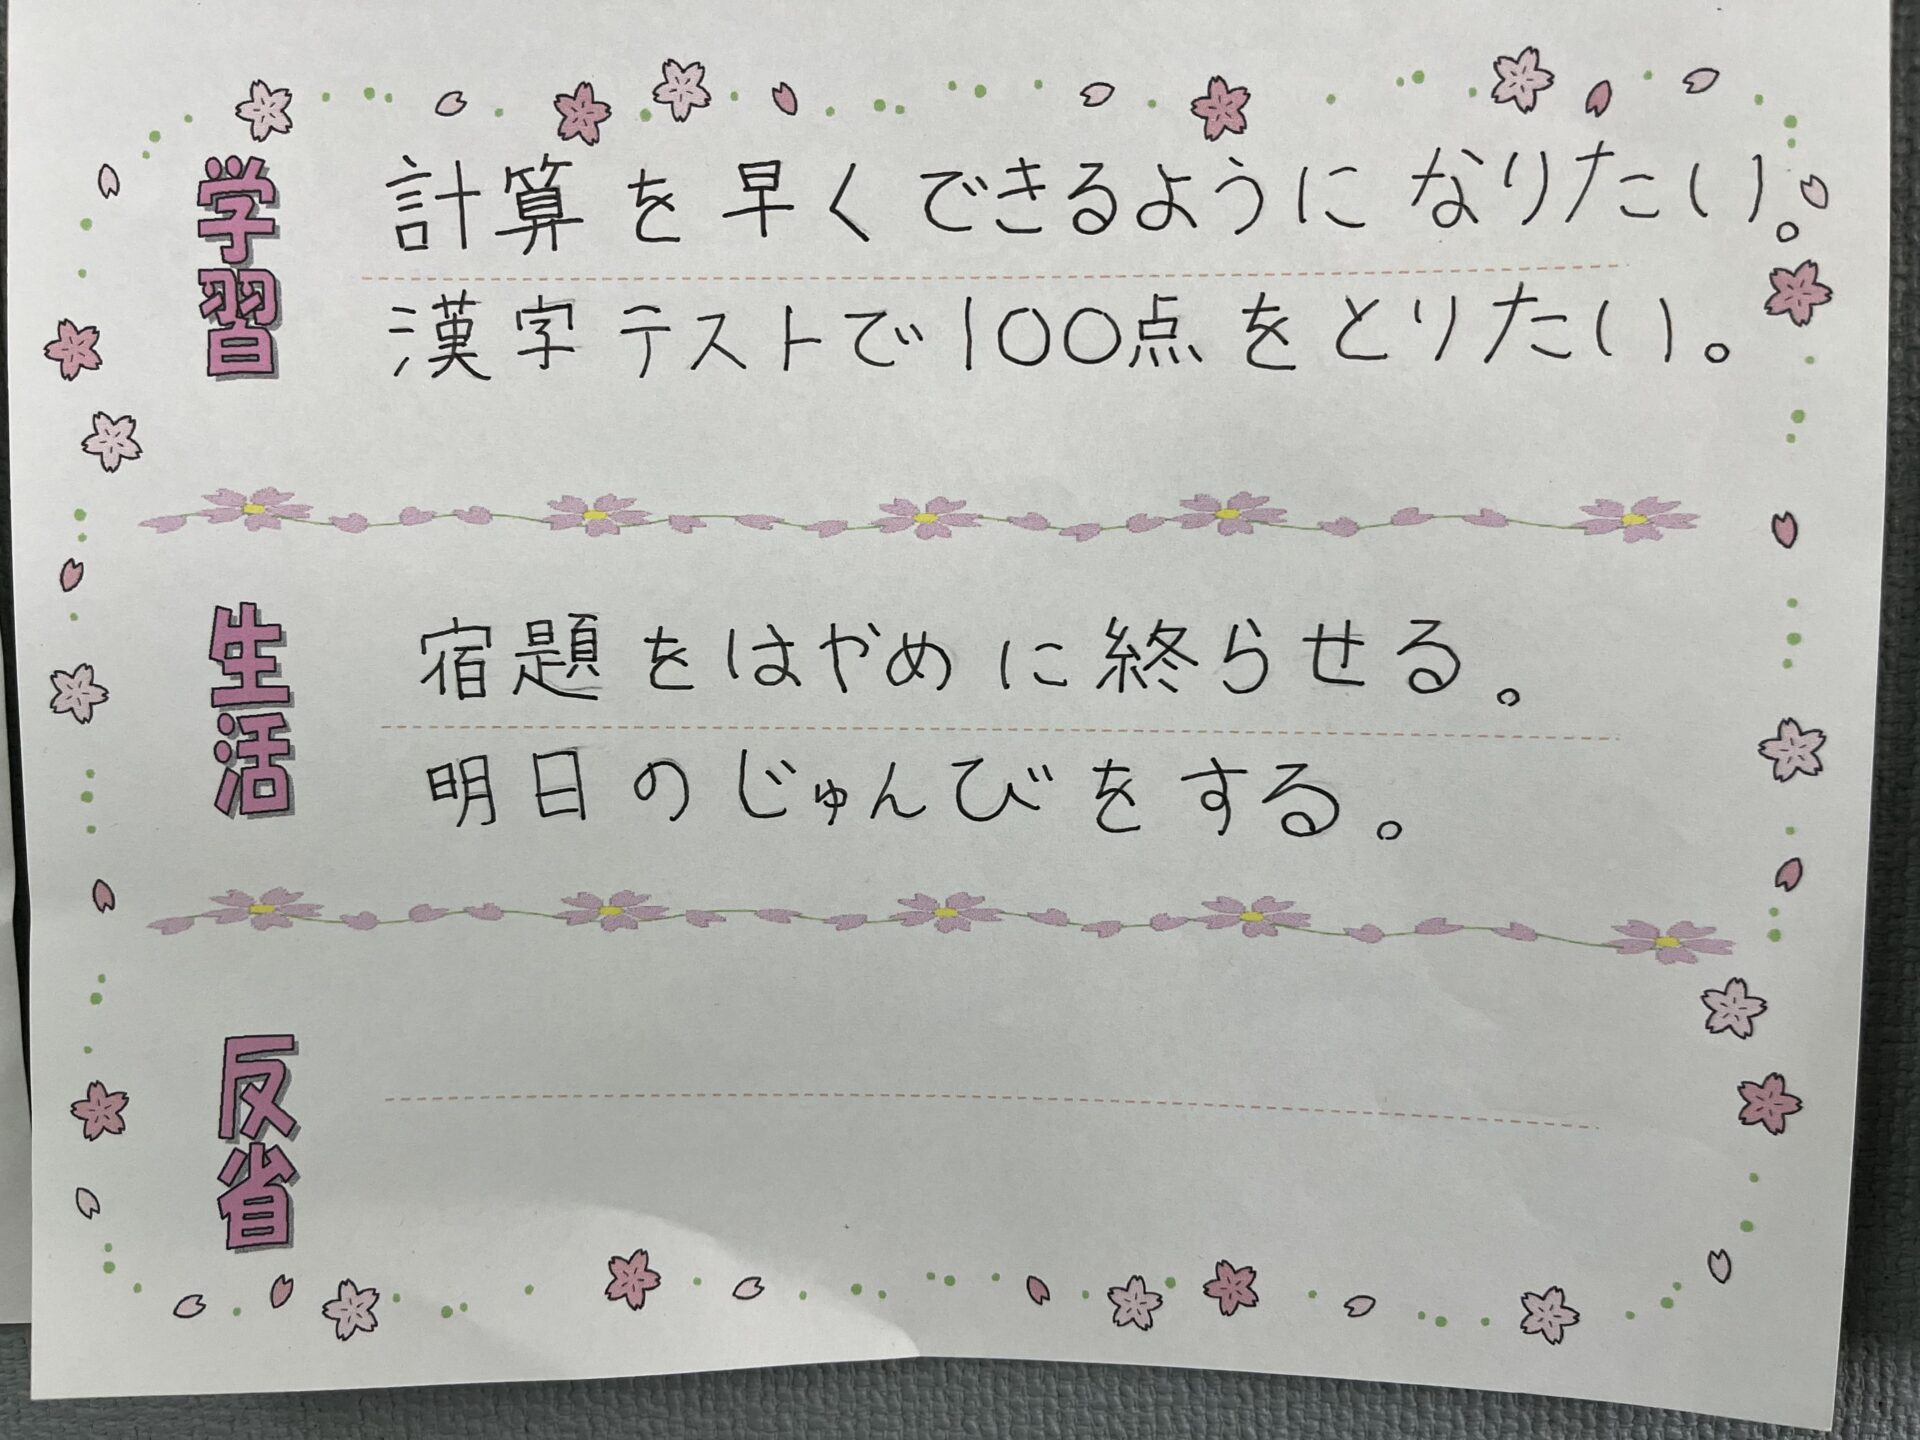 学習
計算を早くできるようになりたい。
漢字テストで100点をとりたい。
生活
宿題をはやめに終らせる。
明日のじゅんびをする。
反省